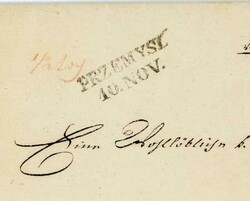 PRZEMYSL
10. NOV.
Eine Wohllöbliche k.